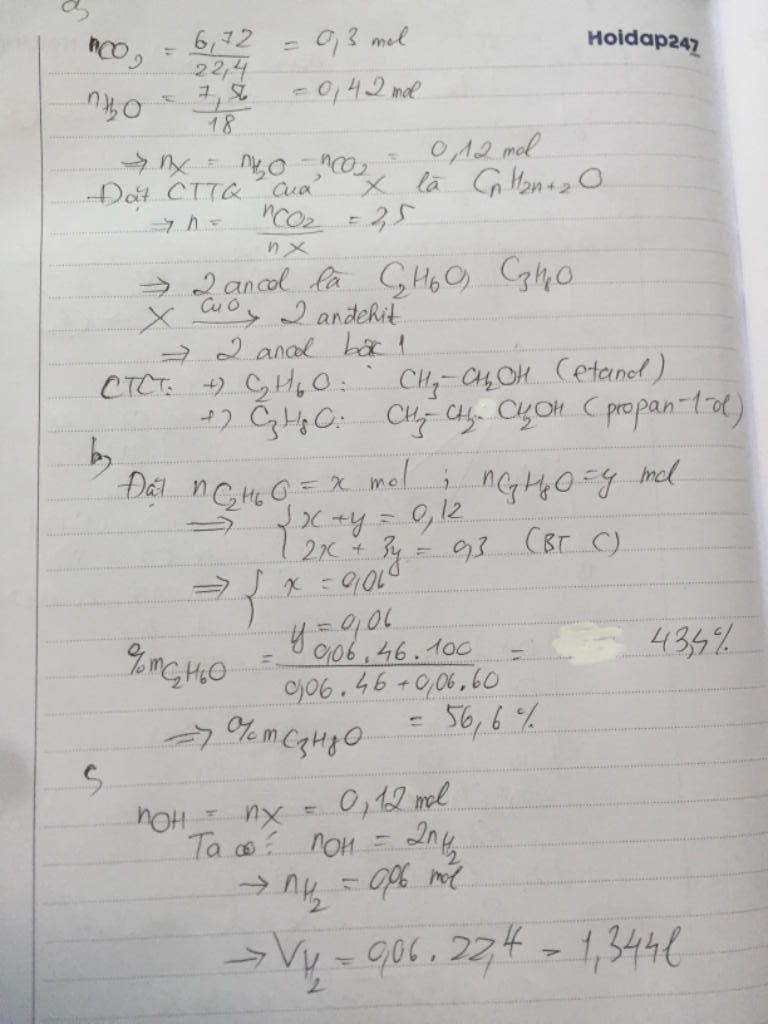 a)
Hoidap247
nCO2 = 6,72/22,4 = 0,3 mol
nH2O = 7,56/18 = 0,42 mol
=> nX = nH2O - nCO2 = 0,12 mol
Đặt CTTQ của X là CnH2n+2O
=> n = nCO2/nX = 2,5
=> 2 ancol là C2H6O, C3H8O
X CuO→ 2 anđehit
=> 2 ancol bậc 1
CTCT: +) C2H6O: CH3-CH2OH (etanol)
+) C3H8O: CH3-CH2-CH2OH (propan-1-ol)
b)
Đặt nC2H6O = x mol ; nC3H8O = y mol
=> { x + y = 0,12
2x + 3y = 0,3 (BT C)
=> { x = 0,06
y = 0,06
%mC2H6O = 0,06.46.100/0,06.46+0,06.60 = 43,4%
=> %mC3H8O = 56,6%
c)
nOH = nX = 0,12 mol
Ta có: nOH = 2nH2
→ nH2 = 0,06 mol
→ VH2 = 0,06.22,4 = 1,344l